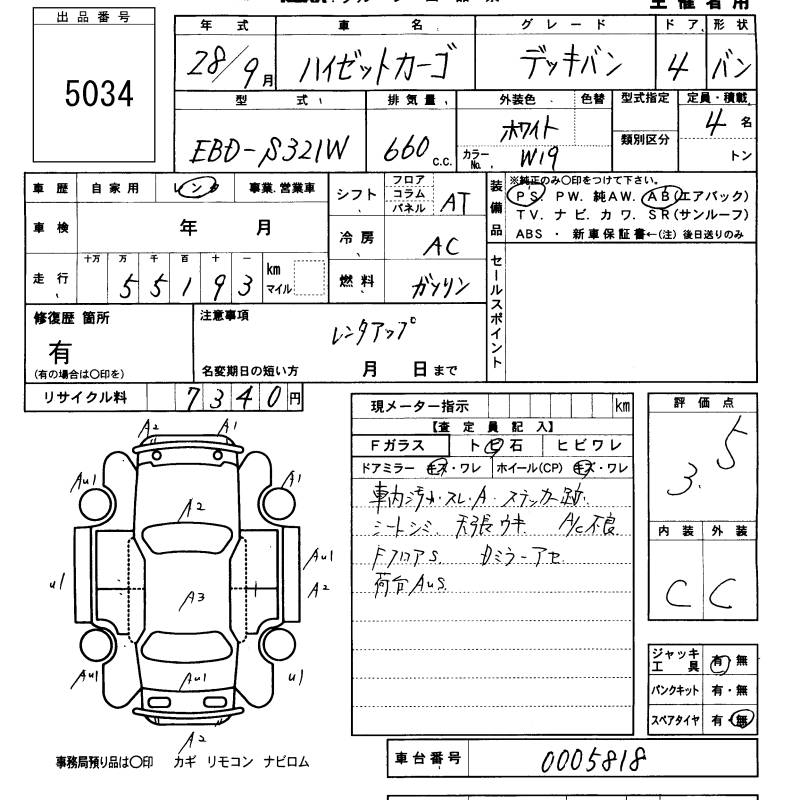 主催者用
出品番号
5034
年式 車名 グレード ドア 形状
28/9月 ハイゼットカーゴ デッキバン 4 バン
型式 排気量 外装色 色替 型式指定 定員・積載
EBD-S321W 660 c.c. ホワイト 類別区分 4名
カラーNo. W19 トン
車歴 自家用 レンタ 事業.営業車 シフト フロア コラム パネル AT
装備品 ※純正のみ〇印をつけて下さい。
PS. PW. 純AW. AB(エアバック)
TV. ナビ. カワ. SR(サンルーフ)
ABS ・ 新車保証書←(注) 後日送りのみ
車検 年 月 冷房 AC
走行 十万 万 千 百 十 一
55193 km マイル 燃料 ガソリン
セールスポイント
修復歴 箇所 注意事項
有 レンタアップ
(有の場合は〇印を) 名変期日の短い方 月 日まで
リサイクル料 7340円
現メーター指示 km
【査定員記入】
Fガラス トビ石 ヒビワレ
ドアミラー キズ・ワレ ホイール(CP) キズ・ワレ
車内汚れ・スレ・A・ステッカー跡.
シートシミ. 天張ウキ A/C不良
FフロアS. Dミラーアセ.
荷台AuS.
評価点
3.5
内装 外装
C C
ジャッキ工具 有・無
パンクキット 有・無
スペアタイヤ 有・無
A2 A1
Au1 A1
A2
Au1
u1 A3 A2
Au1 Au1 u1
A2
事務局預り品は〇印 カギ リモコン ナビロム
車台番号 0005818